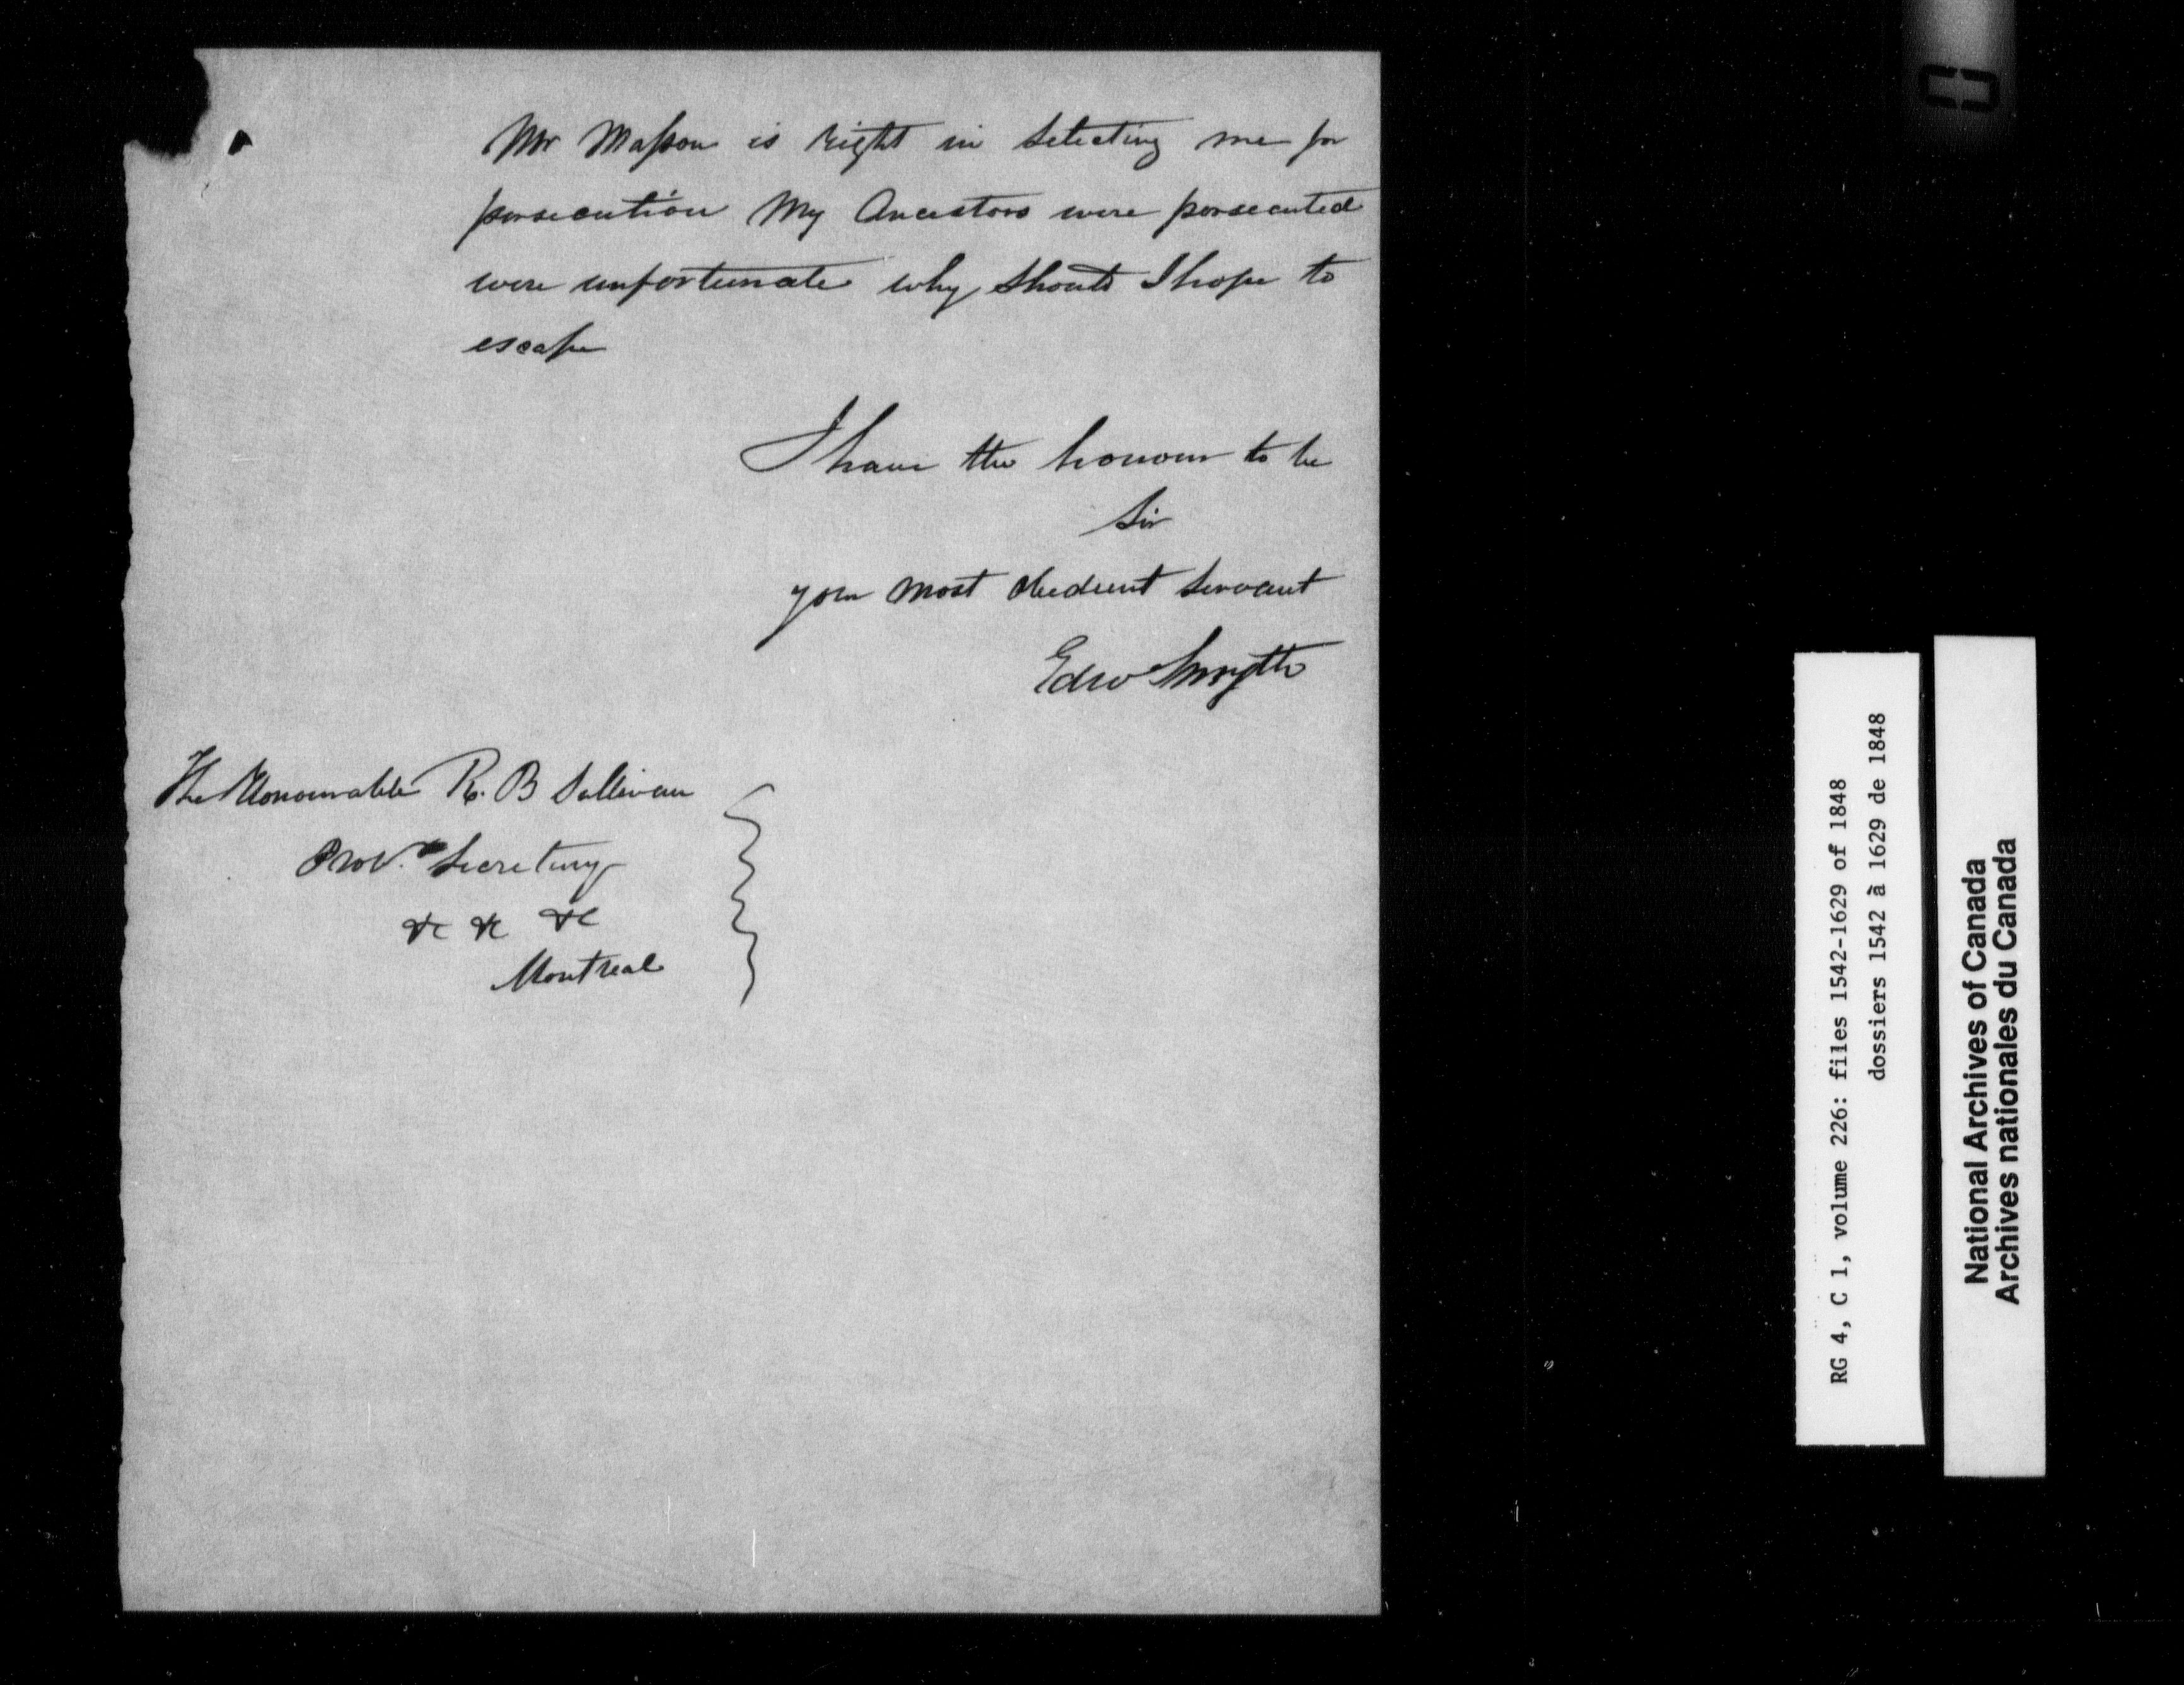 Mr Masson is right in selecting me for
persecution My Ancestors were persecuted
were unfortunate why should I hope to
escape
I have the honour to be
Sir
your most obedient servant
Edw Smyth
The Honourable R. B Sullivan
Prov. Secretary
&c &c &c
Montreal
RG 4, C 1, volume 226: files 1542-1629 of 1848
dossiers 1542 à 1629 de 1848
National Archives of Canada
Archives nationales du Canada